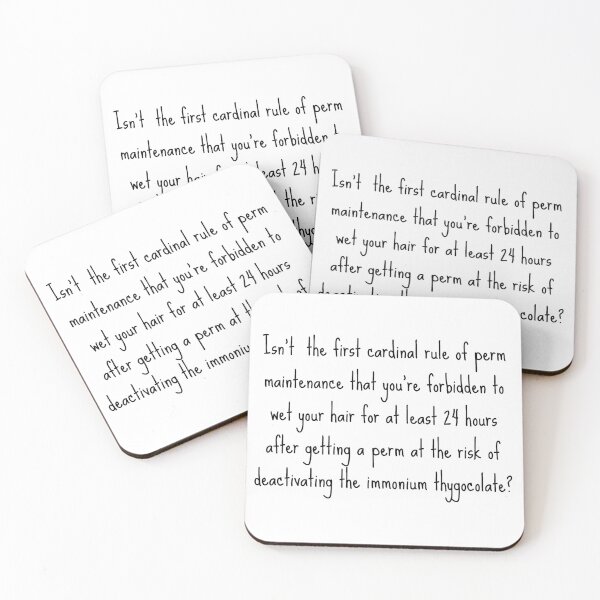 Isn't the first cardinal rule of perm
maintenance that you're forbidden
wet your hair 24
the
Isn't the first cardinal rule of perm
maintenance that you're forbidden to
wet your hair for at least 24 hours
after getting a perm at the risk of
deactivating the immonium thygocolate?
Isn't the first cardinal rule of perm
maintenance that you're forbidden to
wet your hair for at least 24 hours
after getting a perm at the of
deactivating the immonium
Isn't the first cardinal rule of perm
maintenance that you're forbidden to
wet your hair for at least 24 hours
after getting a perm at the risk of
deactivating the immonium thygocolate?